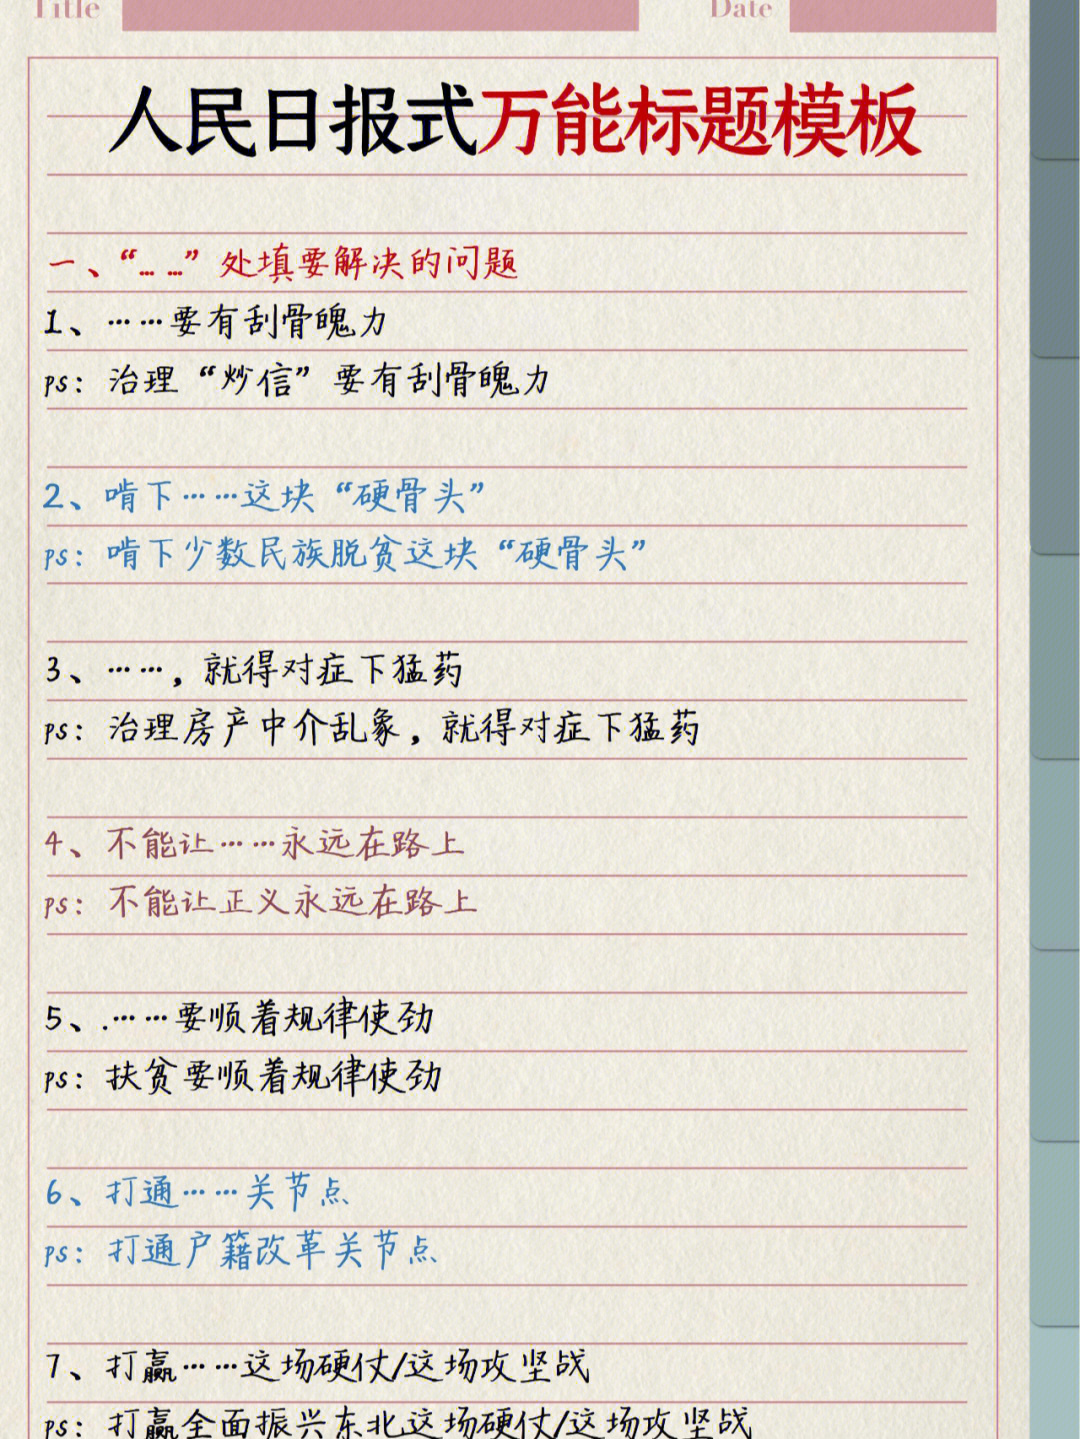 Title Date
人民日报式万能标题模板
一、“……”处填要解决的问题
1、……要有刮骨魄力
ps：治理“炒信”要有刮骨魄力
2、啃下……这块“硬骨头”
ps：啃下少数民族脱贫这块“硬骨头”
3、……，就得对症下猛药
ps：治理房产中介乱象，就得对症下猛药
4、不能让……永远在路上
ps：不能让正义永远在路上
5、.……要顺着规律使劲
ps：扶贫要顺着规律使劲
6、打通……关节点
ps：打通户籍改革关节点
7、打赢……这场硬仗/这场攻坚战
ps：打赢全面振兴东北这场硬仗/这场攻坚战